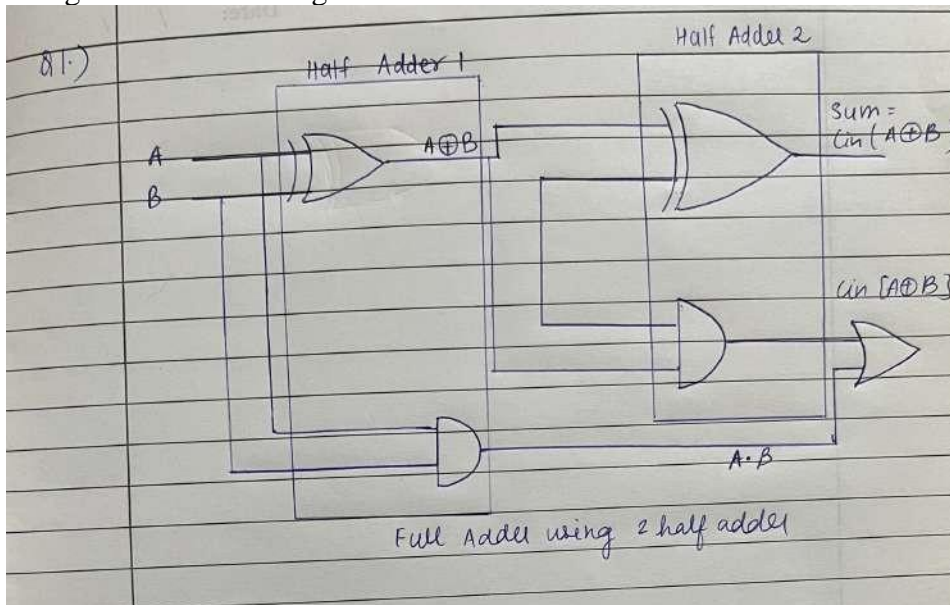 Q1.)
Half Adder 1
Half Adder 2
A
B
A⊕B
Sum =
Cin (A⊕B
Cin [A⊕B]
A·B
Full Adder using 2 half adder